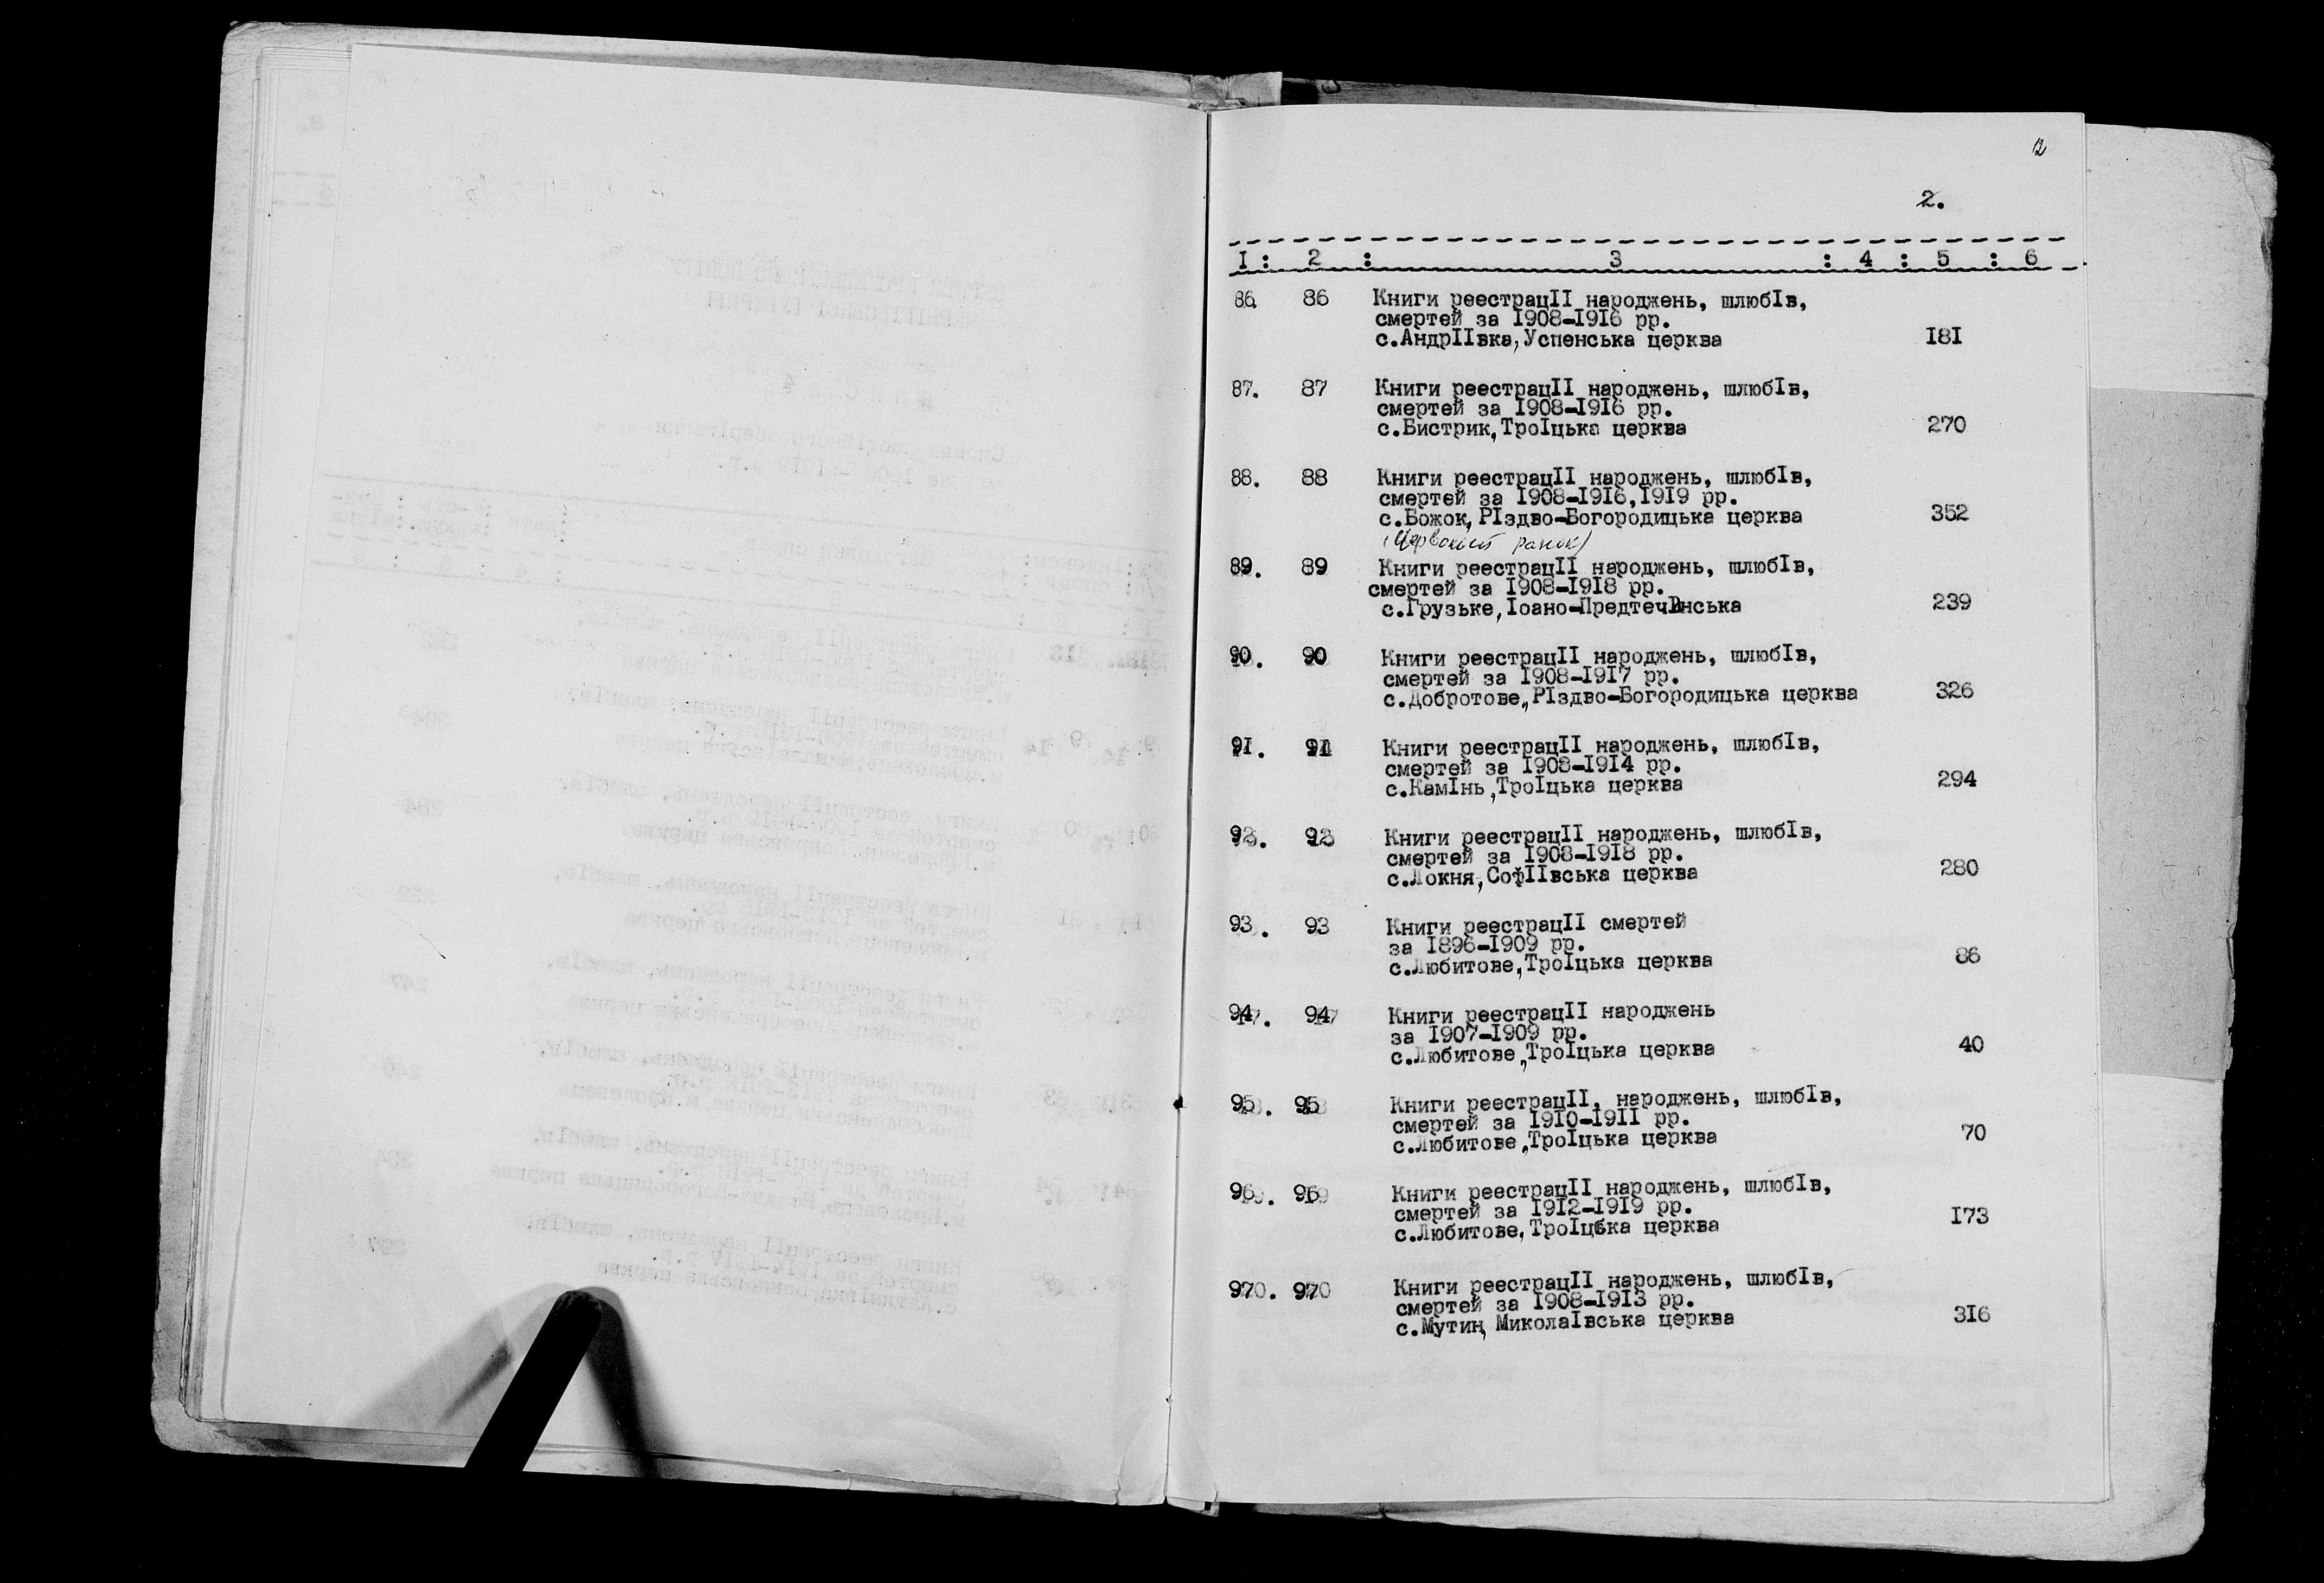 12
2.
I : 2 : 3 : 4 : 5 : 6
86. 86 Книги реестрацII народжень, шлюбIв,
смертей за I908-I9I6 рр.
с.АндрIIвка, Успенська церква I8I
87. 87 Книги реестрацII народжень, шлюбIв,
смертей за I908-I9I6 рр.
с.Бистрик, ТроIцька церква 270
88. 88 Книги реестрацII народжень, шлюбIв,
смертей за I908-I9I6,I9I9 рр.
с.Божок, РIздво-Богородицька церква 352
(Червоний ранок)
89. 89 Книги реестрацII народжень, шлюбIв,
смертей за I908-I9I8 рр.
с.Грузьке, Iоано-Предтечинська 239
90. 90 Книги реестрацII народжень, шлюбIв,
смертей за I908-I9I7 рр.
с.Добротове, РIздво-Богородицька церква 326
9I. 9I Книги реестрацII народжень, шлюбIв,
смертей за I908-I9I4 рр.
с.КамIнь, ТроIцька церква 294
92. 92 Книги реестрацII народжень, шлюбIв,
смертей за I908-I9I8 рр.
с.Локня, СофIIвська церква 280
93. 93 Книги реестрацII смертей
за I896-I909 рр.
с.Любитове, ТроIцька церква 86
94. 94 Книги реестрацII народжень
за I907-I909 рр.
с.Любитове, ТроIцька церква 40
95. 95 Книги реестрацII, народжень, шлюбIв,
смертей за I9I0-I9II рр.
с.Любитове, ТроIцька церква 70
96. 96 Книги реестрацII народжень, шлюбIв,
смертей за I9I2-I9I9 рр.
с.Любитове, ТроIцька церква I73
97. 97 Книги реестрацII народжень, шлюбIв,
смертей за I908-I9I3 рр.
с.Мутин, МиколаIвська церква 3I6